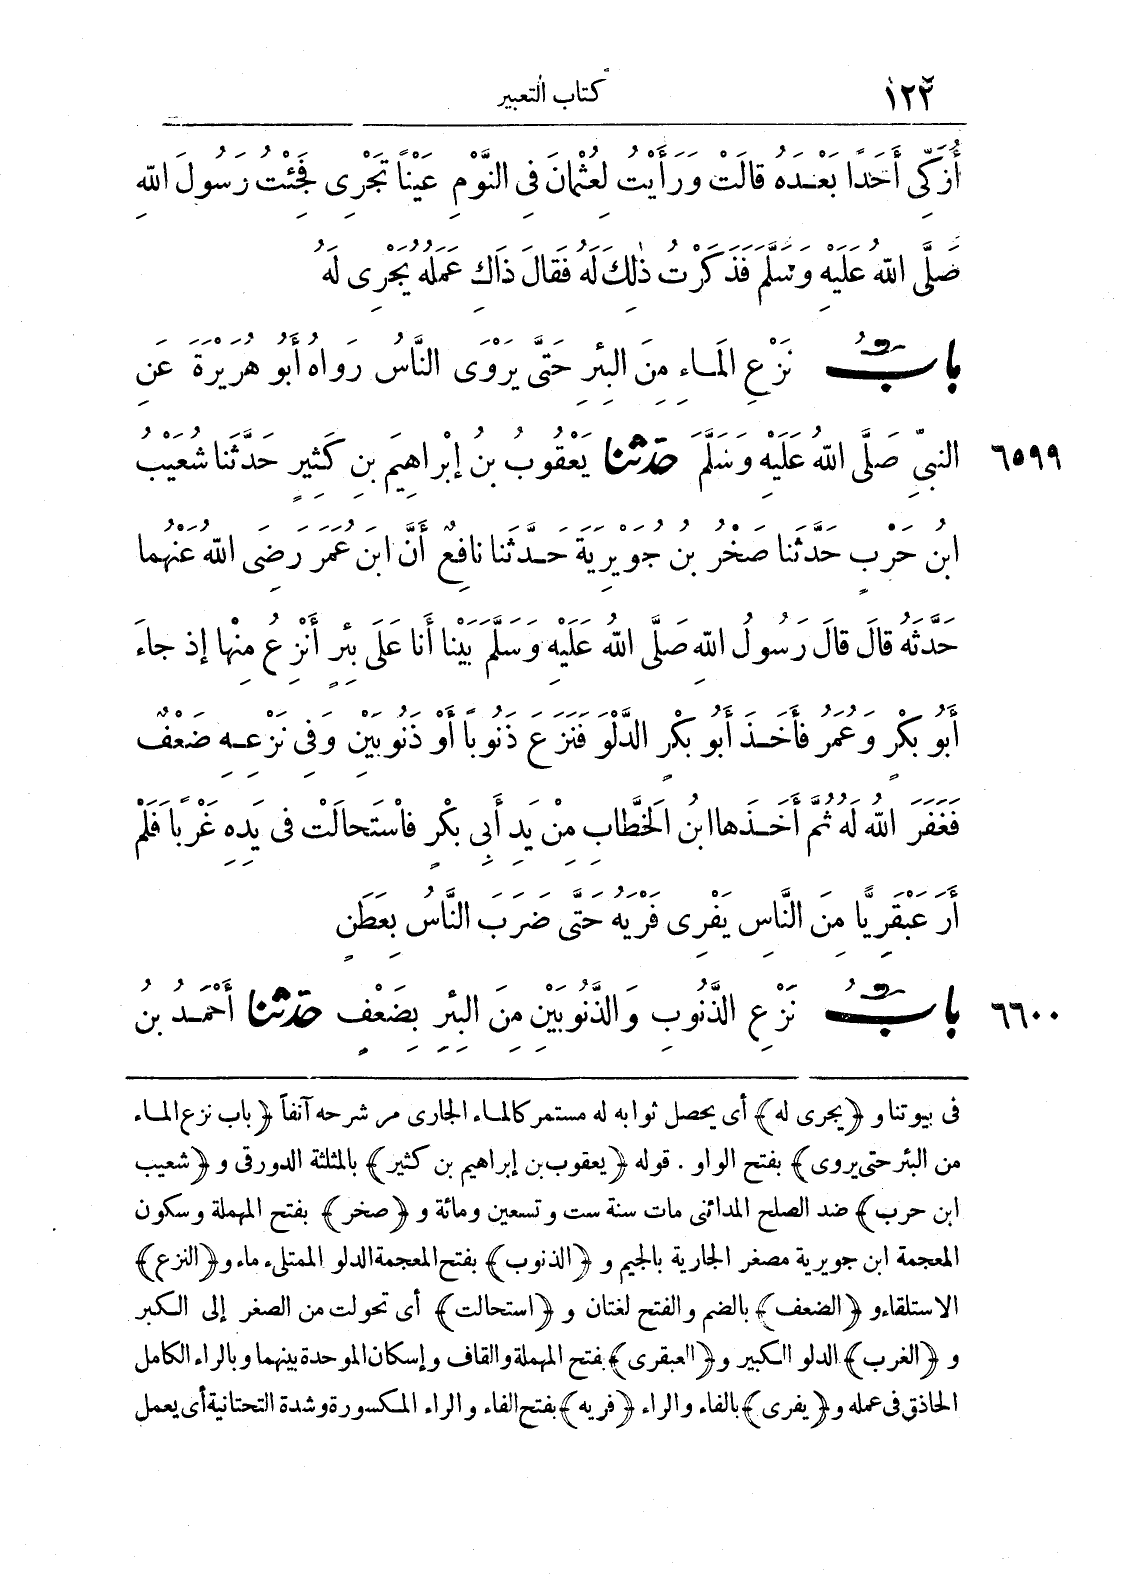 ١٢٢ كتاب التعبير
أُزَكِّى أَحَدًا بَعْدَهُ قالَتْ وَرَأَيْتُ لِعُثْمانَ فِى النَّوْمِ عَيْناً تَجْرِى فَجِئْتُ رَسُولَ اللهِ
صَلَّى اللهُ عَلَيْهِ وَسَلَّمَ فَذَكَرْتُ ذٰلِكَ لَهُ فَقَالَ ذَاكِ عَمَلُهُ يُجْرِى لَهُ
بابُ نَزْعِ المَاءِ مِنَ البِئْرِ حَتَّى يَرْوَى النَّاسُ رَواهُ أَبُو هُرَيْرَةَ عَنِ
٦٥٩٩ النبيِّ صَلَّى اللهُ عَلَيْهِ وَسَلَّمَ حدّثنا يَعْقُوبُ بنُ إبْراهِيمَ بنِ كَثِيرٍ حَدَّثَنا شُعَيْبُ
ابنُ حَرْبٍ حَدَّثَنا صَخْرُ بنُ جُوَيْرِيَةَ حَدَّثَنا نافِعٌ أَنَّ ابنَ عُمَرَ رَضِىَ اللهُ عَنْهُما
حَدَّثَهُ قالَ قالَ رَسُولُ اللهِ صَلَّى اللهُ عَلَيْهِ وَسَلَّمَ بَيْنا أَنا عَلَى بِئْرٍ أَنْزِعُ مِنْها إذ جاءَ
أَبُو بَكْرٍ وَعُمَرُ فأَخَذَ أَبُو بَكْرٍ الدَّلْوَ فَنَزَعَ ذَنُوباً أَوْ ذَنُوبَيْنِ وَفِى نَزْعِهِ ضَعْفٌ
فَغَفَرَ اللهُ لَهُ ثُمَّ أَخَذَها ابنُ الخَطَّابِ مِنْ يَدِ أَبِى بَكْرٍ فاسْتَحالَتْ فى يَدِهِ غَرْباً فَلَمْ
أَرَ عَبْقَرِيًّا مِنَ النَّاسِ يَفْرِى فَرْيَهُ حَتَّى ضَرَبَ النَّاسُ بِعَطَنٍ
٦٦٠٠ بابُ نَزْعِ الذَّنُوبِ وَالذَّنُوبَيْنِ مِنَ البِئْرِ بِضَعْفٍ حدّثنا أَحْمَدُ بنُ
فى بيوتنا و ﴿يجرى له﴾ أى يحصل ثوابه له مستمر كالماء الجارى مر شرحه آنفاً ﴿باب نزع الماء
من البئر حتى يروى﴾ بفتح الواو . قوله ﴿يعقوب بن إبراهيم بن كثير﴾ بالمثلثة الدورقى و ﴿شعيب
ابن حرب﴾ ضد الصلح المدائنى مات سنة ست وتسعين ومائة و ﴿صخر﴾ بفتح المهملة وسكون
المعجمة ابن جويرية مصغر الجارية بالجيم و ﴿الذنوب﴾ بفتح المعجمة الدلو الممتلىء ماء و ﴿النزع﴾
الاستلقاء و ﴿الضعف﴾ بالضم والفتح لغتان و ﴿استحالت﴾ أى تحولت من الصغر إلى الكبر
و ﴿الغرب﴾ الدلو الكبير و ﴿العبقرى﴾ بفتح المهملة والقاف وإسكان الموحدة بينهما وبالراء الكامل
الحاذق فى عمله و ﴿يفرى﴾ بالفاء والراء ﴿فريه﴾ بفتح الفاء والراء المكسورة وشدة التحتانية أى يعمل